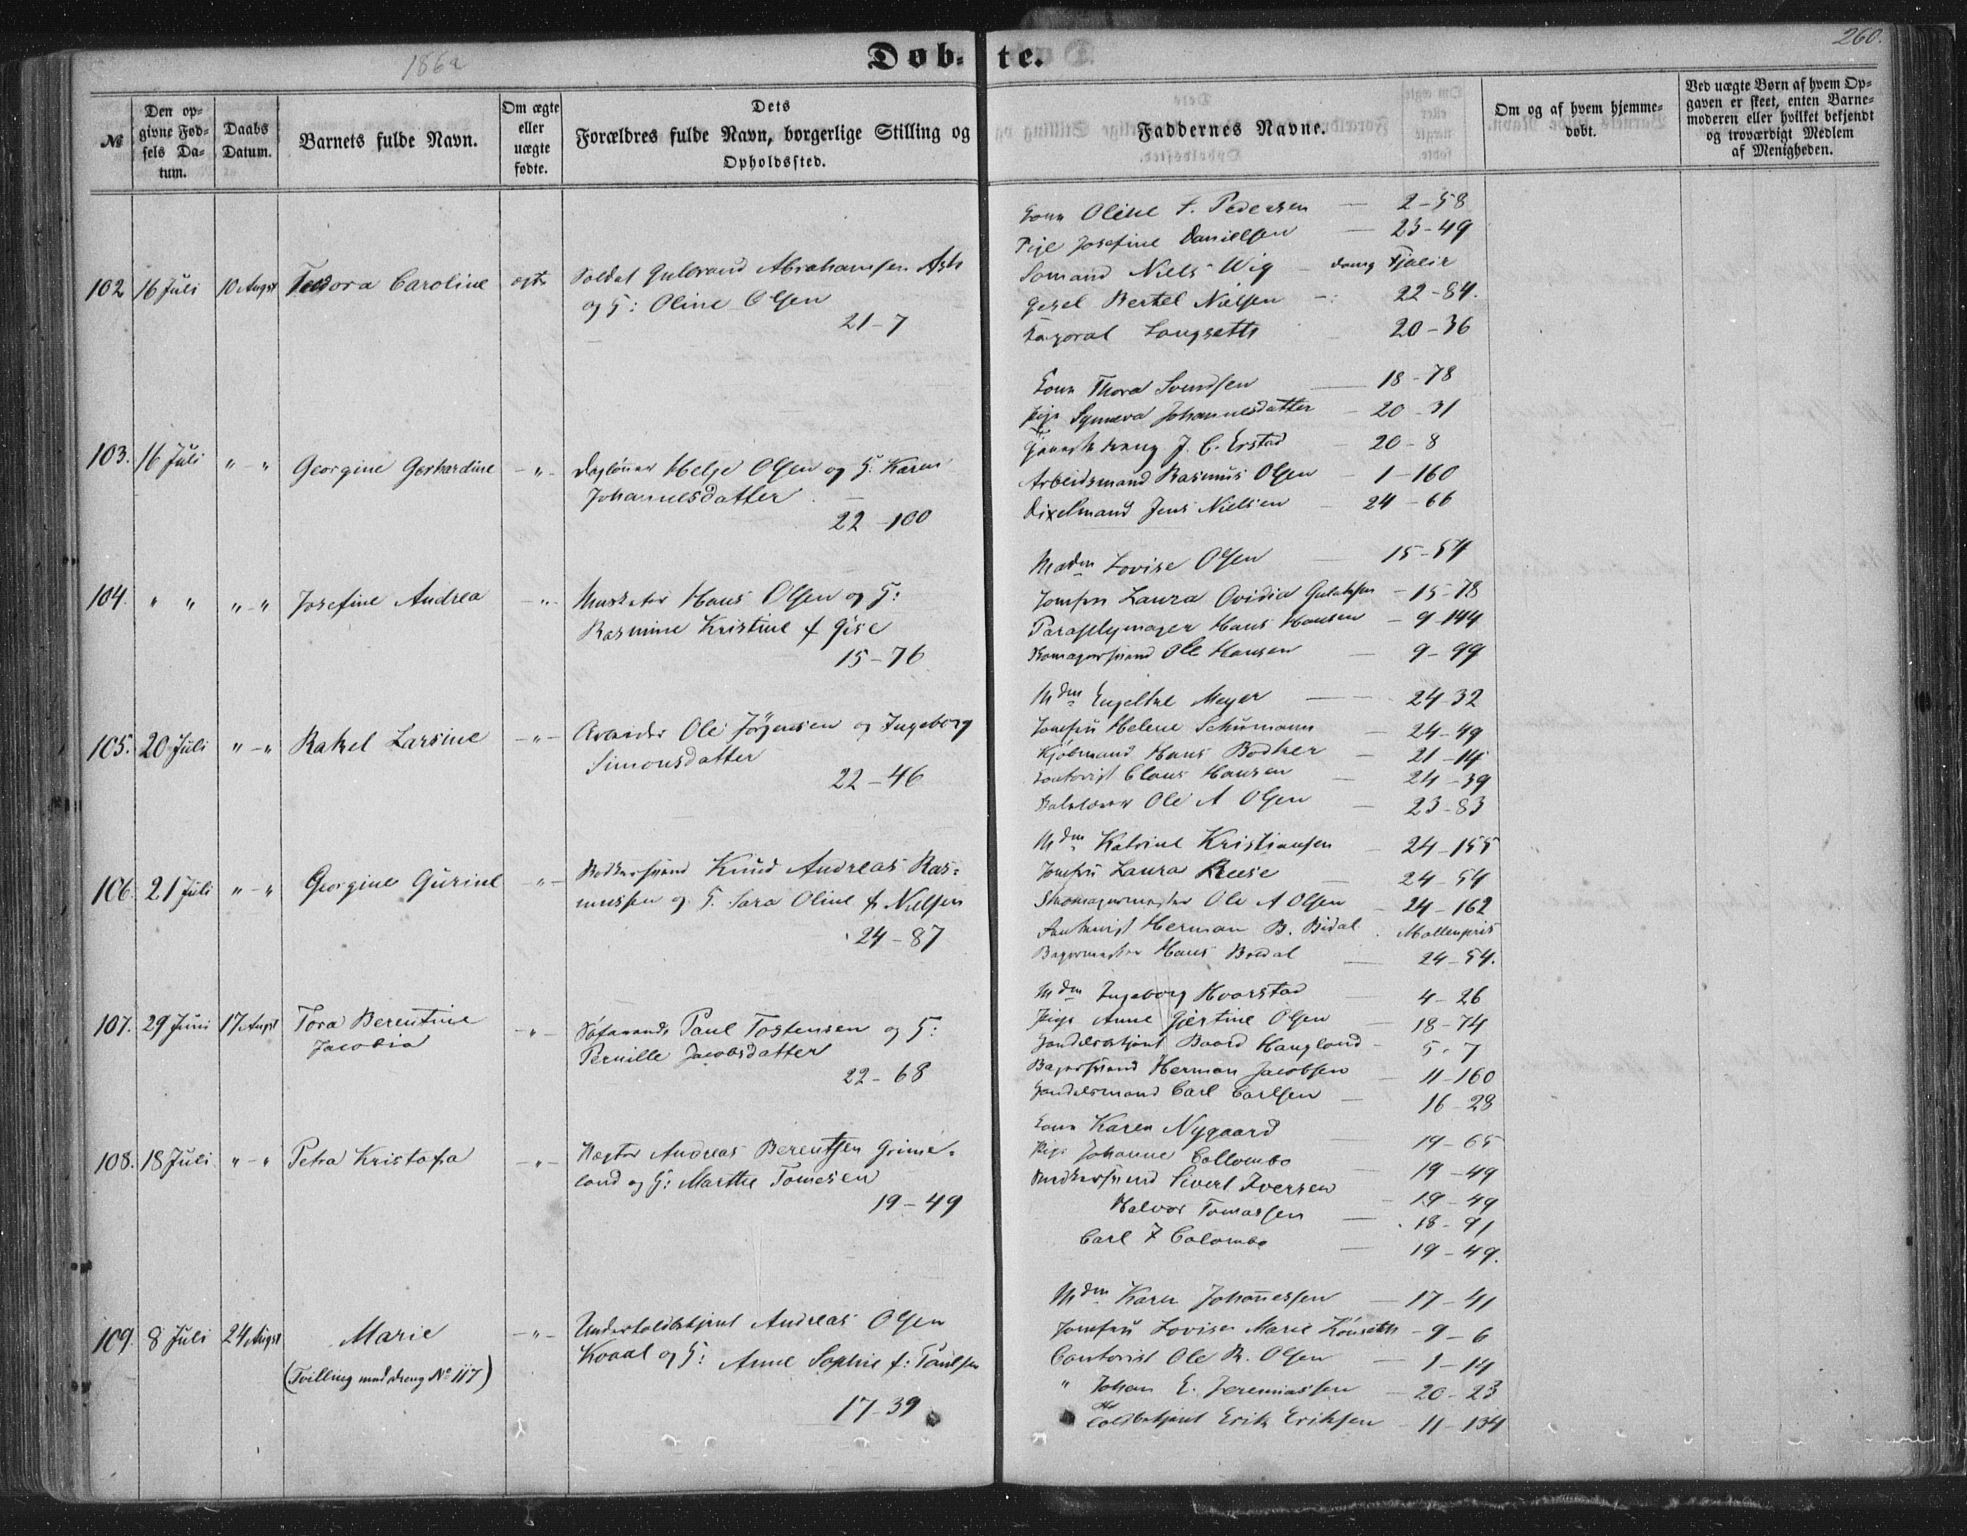 1862
Døb-te.
260.
№
Den opgivne Fødsels Datum.
Daabs Datum.
Barnets fulde Navn.
Om ægte eller uægte fødte.
Dets Forældres fulde Navn, borgerlige Stilling og Opholdssted.
Faddernes Navne.
Om og af hvem hjemmedøbt.
Ved uægte Børn af hvem Opgaven er skeet, enten Barnemoderen eller hvilket bekjendt og troværdigt Medlem af Menigheden.
102 16 Juli 10 Augst Teodora Caroline ægte
Soldat Gulbrand Abrahamsen Ash
og H: Oline Olsen
21-7
Kone Oline f. Pedersen 2-58
Pige Josefine Danielsen 23-49
Sømand Niels Wig
Gesel Bertel Nielsen 22-84.
Korporal Langseth 20-36
103. 16 Juli " - " Georgine Gerhardine - " -
Dagløner Helje Olsen og H: Karen
Johannesdatter
22-100
Kone Thora Svendsen 18-78
Pige Synneva Johannesdatter 20-31
J. C. Erstad 20-8
Arbeidsmand Rasmus Olsen 1-160
Jens Nielsen 24-66
104. " " " - " Josefine Andrea - " -
Musketer Hans Olsen og H:
Rasmine Kristine f Gise
15-76
Madm Lovise Olsen 15-54
Jomfru Laura Ovidia 15-78
Paraplymager Hans Hansen 9-144
Ole Hansen 9-99
105. 20 Juli " - " Rakel Larsine - " -
Arbeider Ole Jørgensen og Ingeborg
Simonsdatter
22-46
Mdm Engeltke Meyer 24-32
Jomfru Helene Schumann 24-49
Kjøbmand Hans Bødker 21-14
Contorist Claus Hansen 24-39
Ole A Olsen 23-83
106. 21 Juli " - " Georgine Gurine - " -
Bødkersvend Knud Andreas Ras-
mussen og H. Sara Oline f Nielsen
24-87
Mdm Katrine Kristiansen 24-155
Jomfru Laura Reese 24-54
Skomagermester Ole A Olsen 24-162
Herman B. Bødal Møllenpris
Bagermester Hans Bødal 24-54.
107. 29 Juni 17 Augst Tora Berentine
Jacobia - " -
Søfarende Paul Tostensen og H:
Pernille Jacobsdatter
22-68
Mdm Ingeborg Hvorstad 4-26
Pige Anne Gjertine Olsen 18-74
Handelsbetjent Baard Haugland 5-7
Bagersvend Herman Jacobsen 11-160
Handelsmand Carl Carlsen 16-28
108. 18 Juli " - " Petra Kristofa - " -
Vægter Andreas Berentsen Grime-
land og H: Marthe Tomesen
19-49
Kone Karen Nygaard 19-65
Pige Johanne Collombo 19-49
Sivert Iversen 19-49
Halvor Tomassen 18-91
Carl F Colombo 19-49.
109. 8 Juli 24 Augst Marie - " -
(Tvilling med dreng No 117)
Undertoldbetjent Andreas Olsen
Kvaal og H: Anne Sophie f: Paulsen
17-39
Mdm Karen Johannessen 17-41
Jomfru Lovise Marie 9-6
Contorist Ole R. Olsen 1-14
" Johan E. Jeremiassen 20-23
Toldbetjent Erik Eriksen 11-134